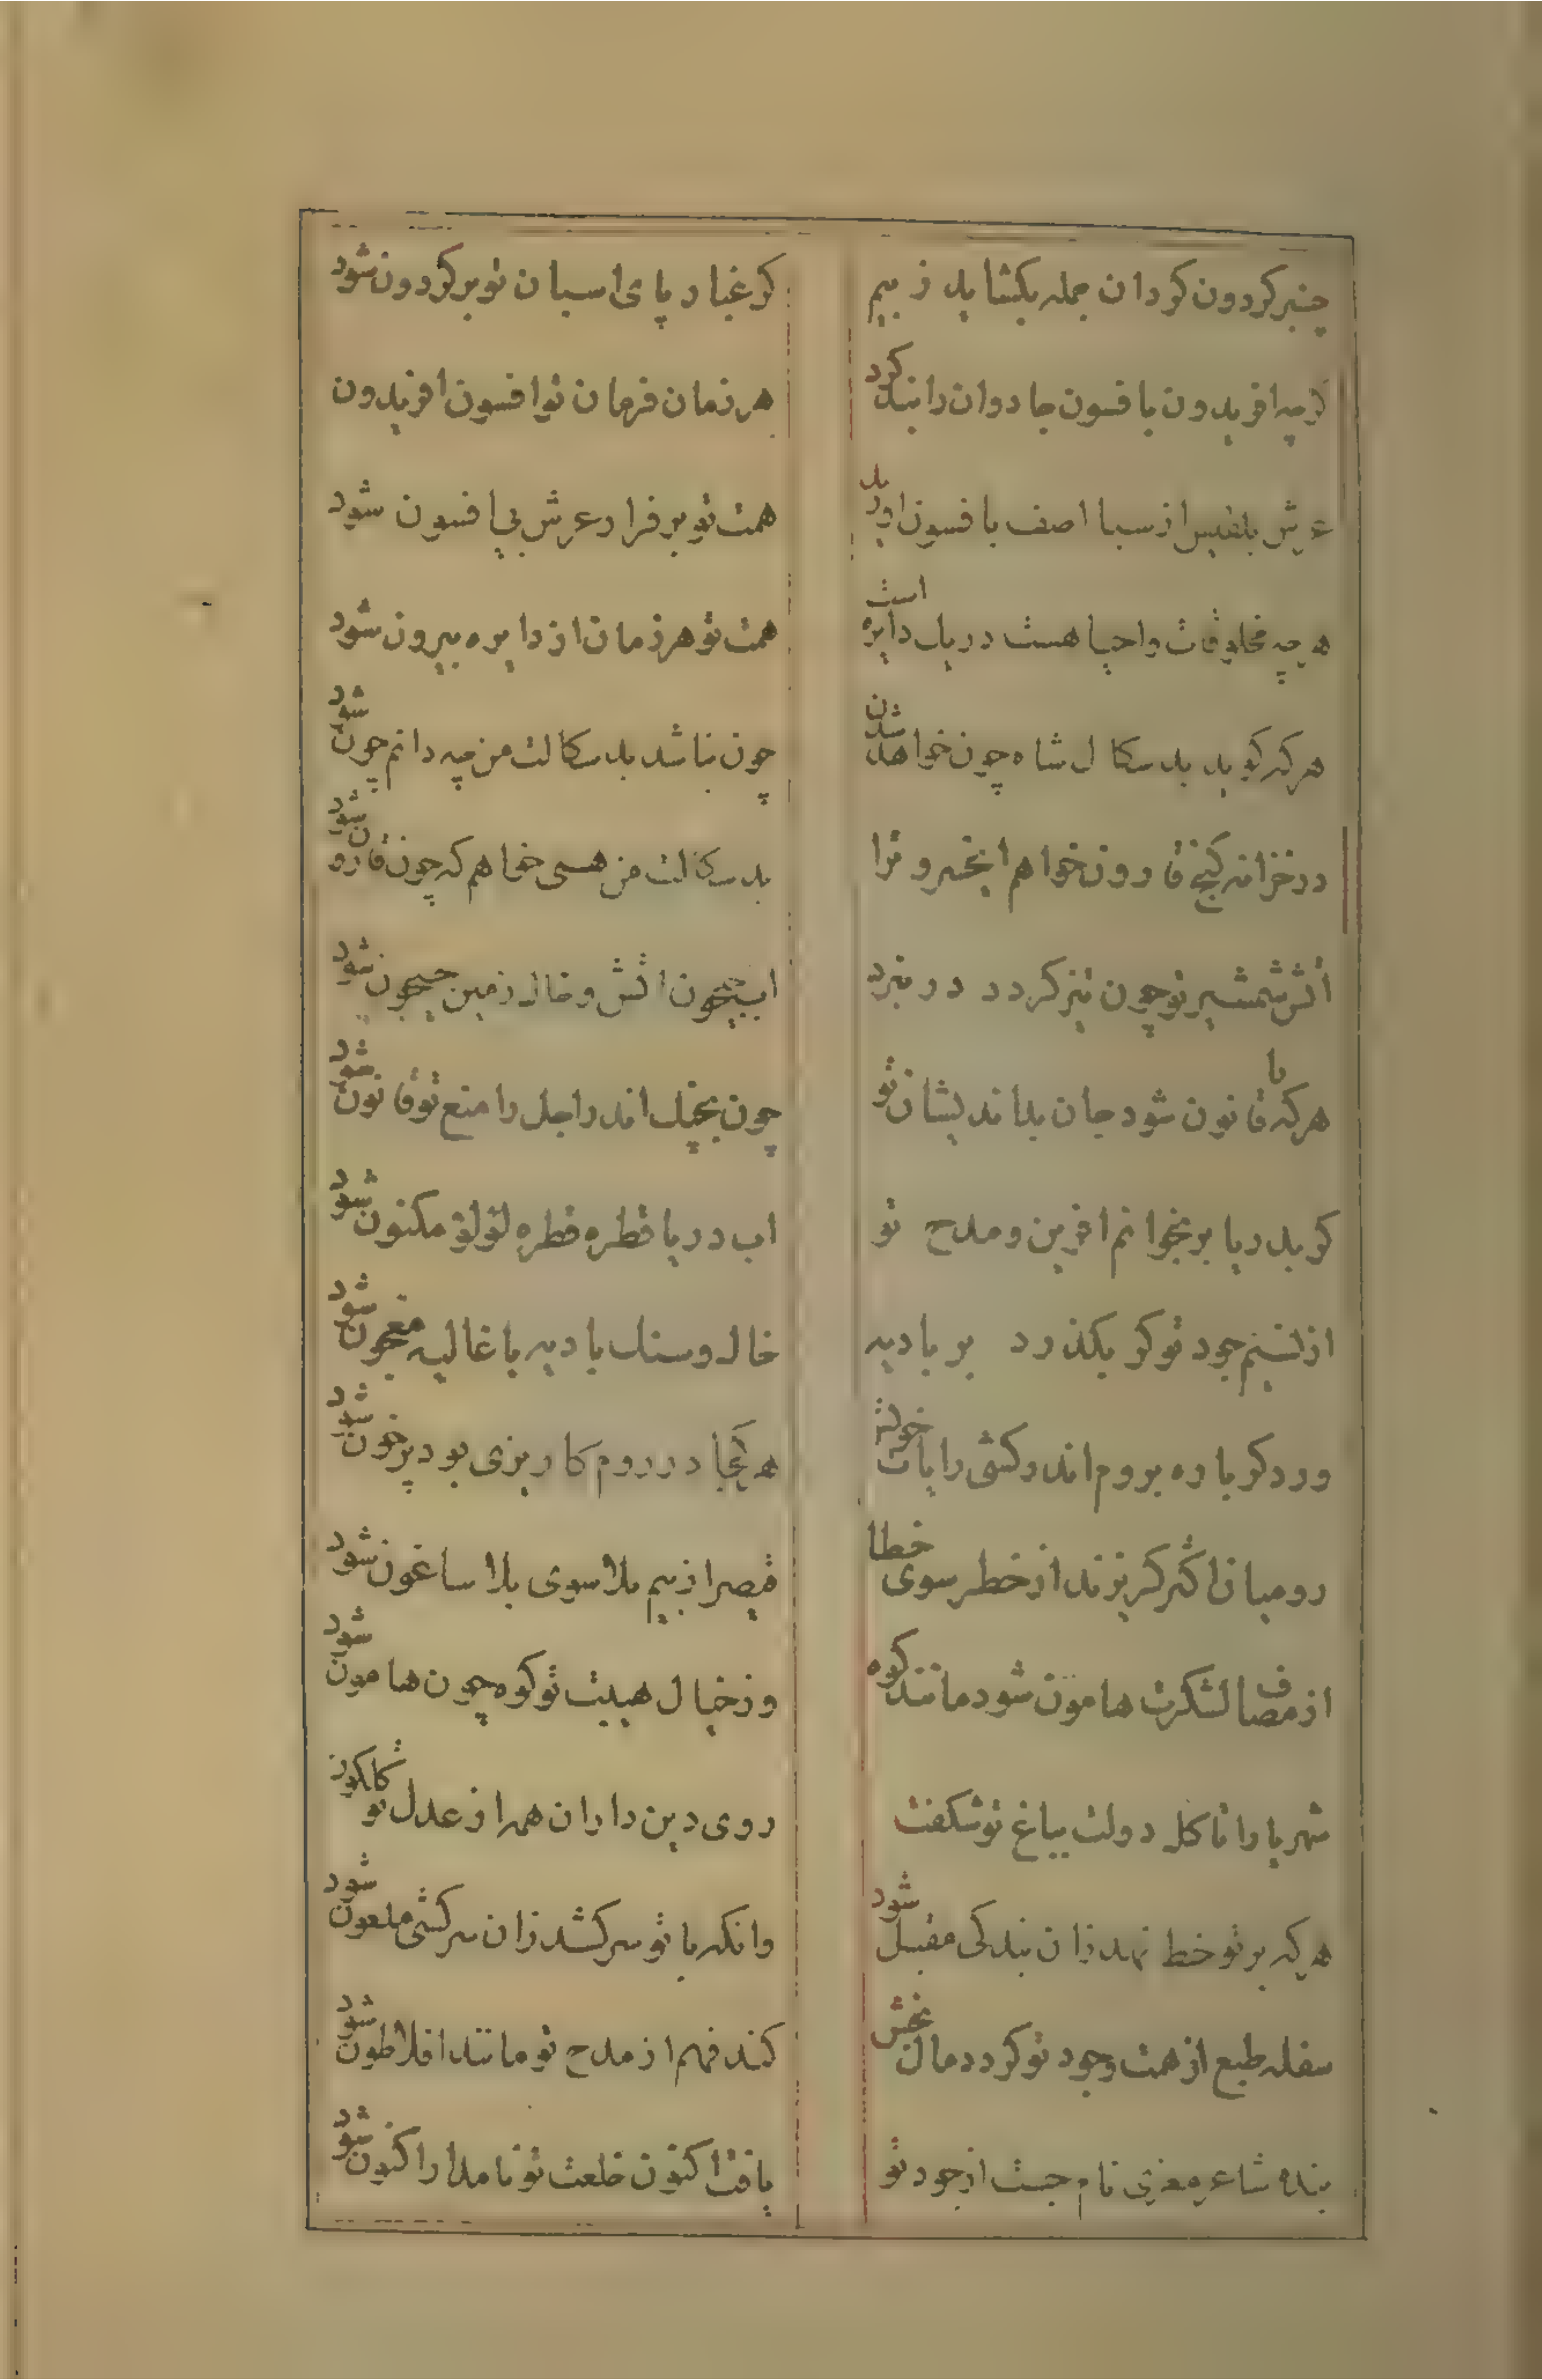 چنبر کردون کردان جمله بکشاید ز بیم
کر غبار پای اسبان تو بر کردون شود
کرچه افریدون بافسون جادوان را بند کرد
هر زمان فرمان تو افسون افریدون شود
عرش بلقیس از سبا اصف بافسون اورید
همت تو بر فراز عرش بی افسون شود
هرچه مخلوقات واحیا هست در یک دایره است
همت تو هر زمان از دایره بیرون شود
هرکه کوید بد سکال شاه چون خواهد شدن
چون نباشد بد سکالت من چه دانم چون شود
در خزانه کنج قارون خواهم ایخسرو ترا
بد سکالت من همی خواهم که چون قارون شود
اتش شمشیر تو چون تیز کردد در نبرد
اب جیحون اتش و خاک زمین جیحون شود
هرکه با قانون شود جان بداندیشان تو
چون بچنک اندر اجل را منع تو قانون شود
کر بدریا بر بخوانم افرین و مدح تو
اب دریا قطره قطره لؤلؤ مکنون شود
از نسیم جود تو کر بکذرد بر بادیه
خاک و سنک بادیه با غالیه معجون شود
ور دکر باره بروم اندر کشی رایات خویش
هرکجا در روم کاریزی بود پر خون شود
رومیان اکثر کریزند از خطر سوی خطا
قیصر از بیم بلا سوی بلاساغون شود
از مصاف لشکرت هامون شود مانند کوه
وز خیال هیبت تو کوه چون هامون شود
شهریارا تا کل دولت بباغ تو شکفت
روی دین داران همه از عدل تو کلکون
هرکه بر تو خط نهد زان بندکی مقبل شود
وانکه با تو سر کشد زان سرکشی ملعون شود
سفله طبع از همت وجود تو کردد مال بخش
کند فهم از مدح تو مانند افلاطون شود
بنده شاعر معزی نام جست از جود تو
یافت اکنون خلعت تو نامدار اکنون شود